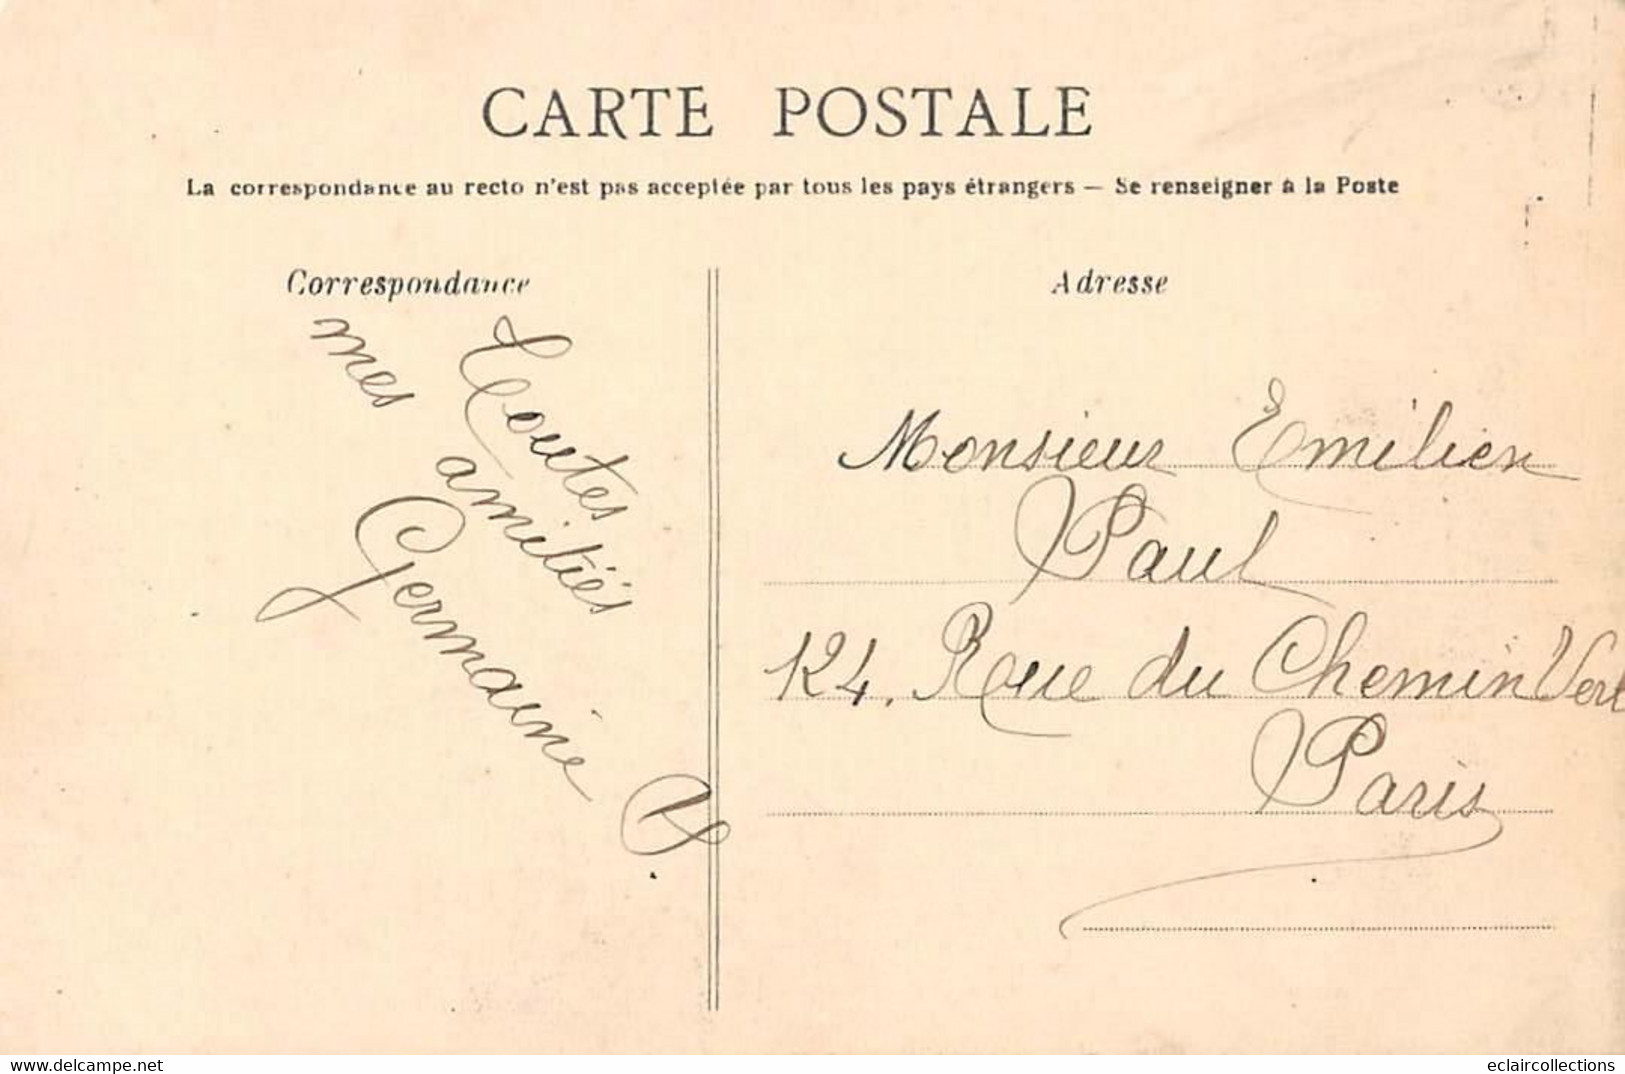 CARTE POSTALE
La correspondance au recto n'est pas acceptée par tous les pays étrangers — Se renseigner à la Poste
Correspondance
Toutes
mes amitiés
Germaine P.
Adresse
Monsieur Emilien
Paul
124, Rue du Chemin Vert
Paris
www.delcampe.net
eclaircollections